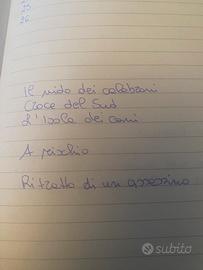 25
26
Il nido dei calabroni
Croce del Sud
L'Isola dei cani
A rischio
Ritratto di un assassino
subito